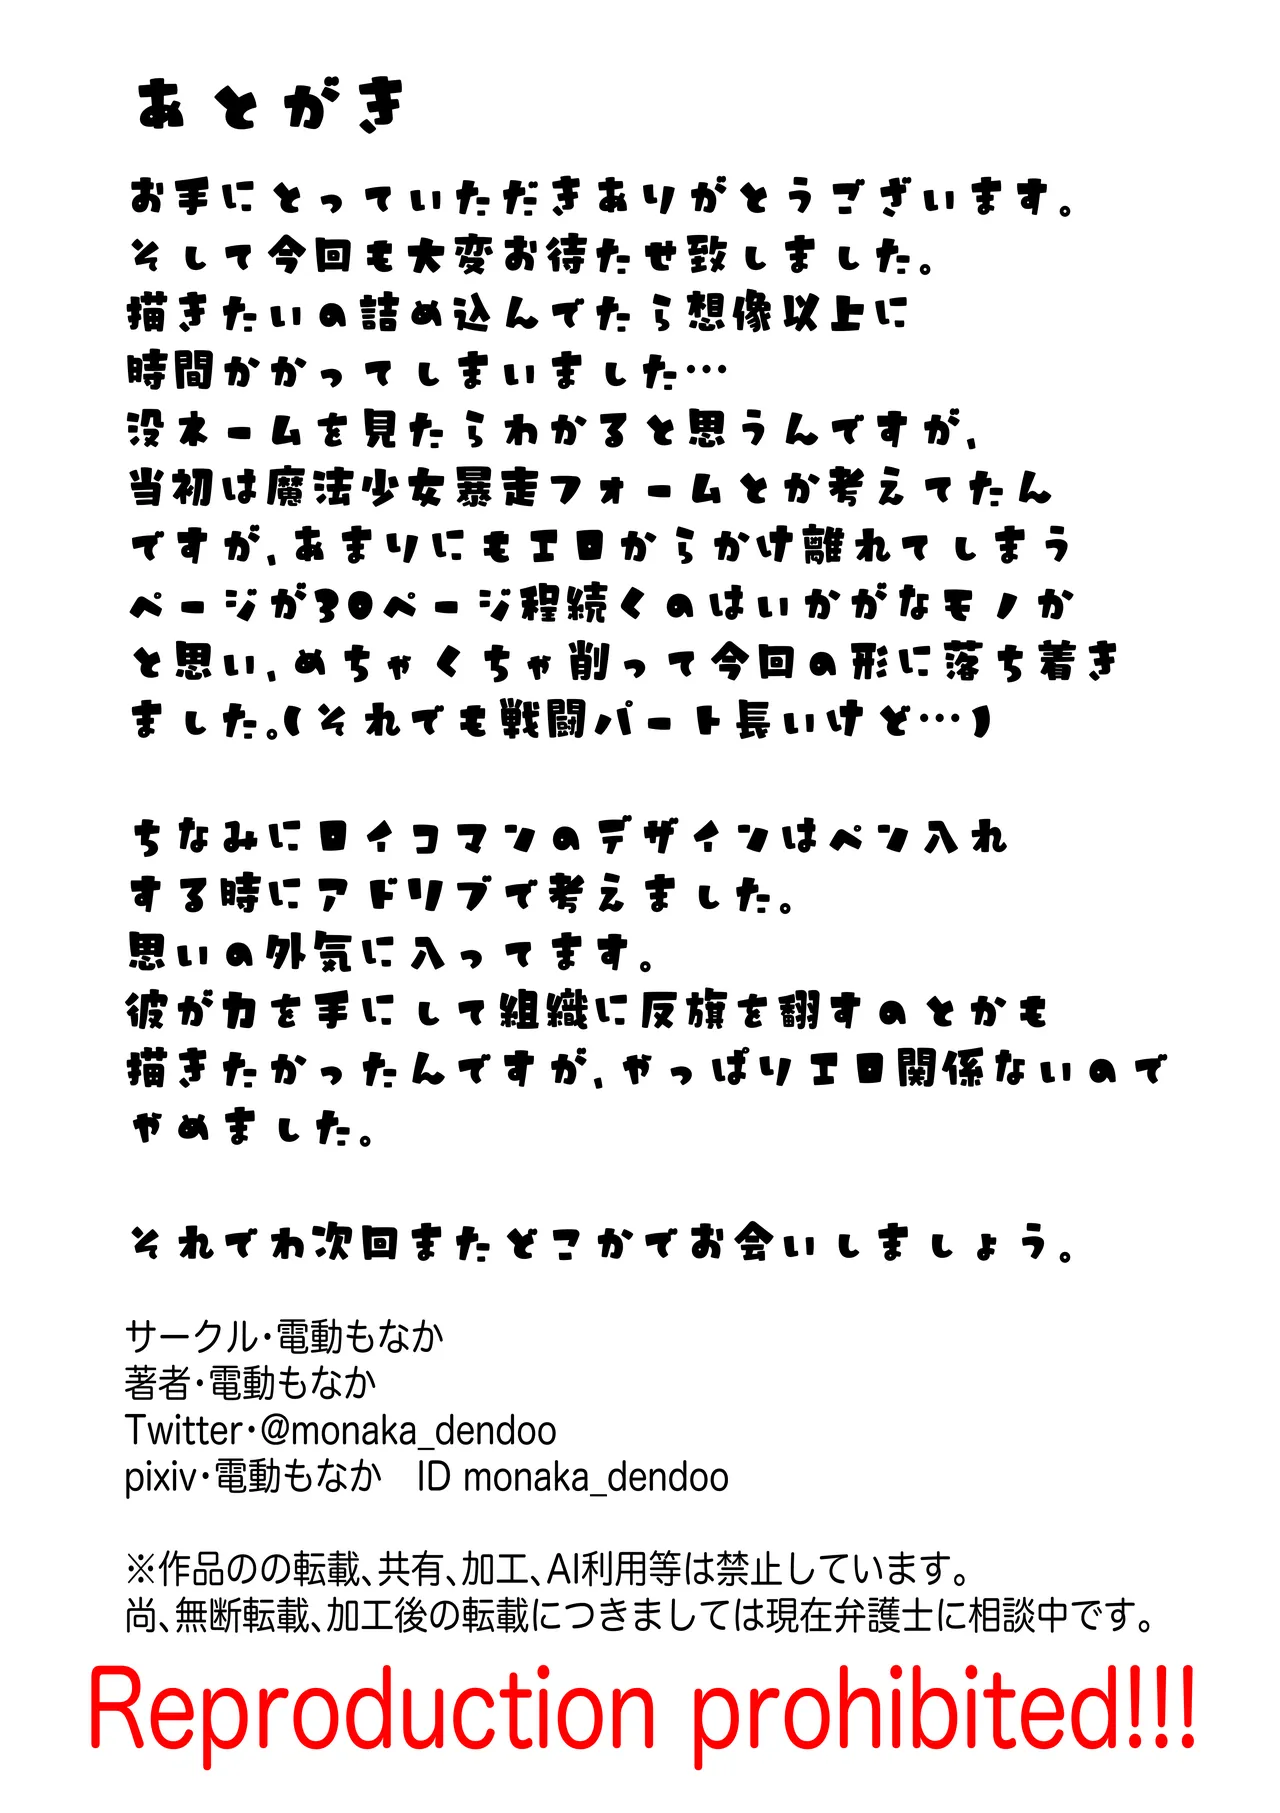 あとがき
お手にとっていただきありがとうございます。
そして今回も大変お待たせ致しました。
描きたいの詰め込んでたら想像以上に
時間かかってしまいました…
没ネームを見たらわかると思うんですが,
当初は魔法少女暴走フォームとか考えてたん
ですが,あまりにもエロからかけ離れてしまう
ページが30ページ程続くのはいかがなモノか
と思い,めちゃくちゃ削って今回の形に落ち着き
ました。(それでも戦闘パート長いけど…)
ちなみにロイコマンのデザインはペン入れ
する時にアドリブで考えました。
思いの外気に入ってます。
彼が力を手にして組織に反旗を翻すのとかも
描きたかったんですが,やっぱりエロ関係ないので
やめました。
それでわ次回またどこかでお会いしましょう。
サークル・電動もなか
著者・電動もなか
Twitter・@monaka_dendoo
pixiv・電動もなか　ID monaka_dendoo
※作品のの転載、共有、加工、AI利用等は禁止しています。
尚、無断転載、加工後の転載につきましては現在弁護士に相談中です。
Reproduction prohibited!!!